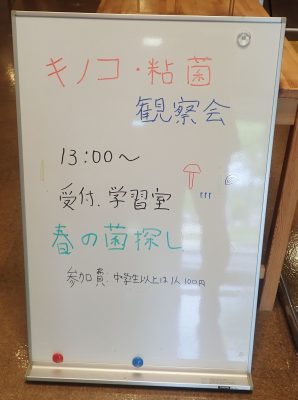 キノコ・粘菌
観察会
13:00〜
受付.学習室
春の菌探し
参加費.中学生以上は1人100円